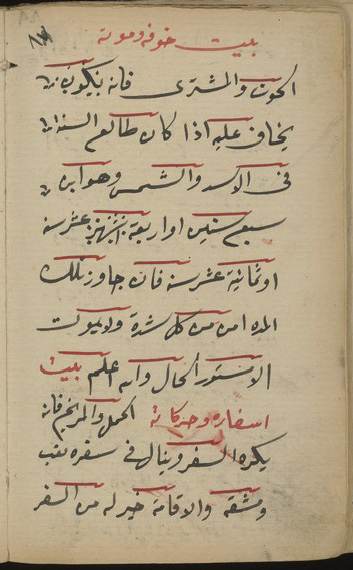 بيت خوفه وموته
الحوت والمشترى فانه يكون
يخاف عليه اذا كان طالع السنة
فى الاسد والشمس وهو ابن
سبع سنين او اربعة عشر سنة
او ثمانية عشر سنة فان جاوز تلك
المده امن من كل شدة ولا يموت
الا مستور الحال والله اعلم بيت
اسفاره وحركاته الحمل والمريخ فانه
يكره السفر وينال فى سفره تعب
ومشقه والاقامة خير له من السفر